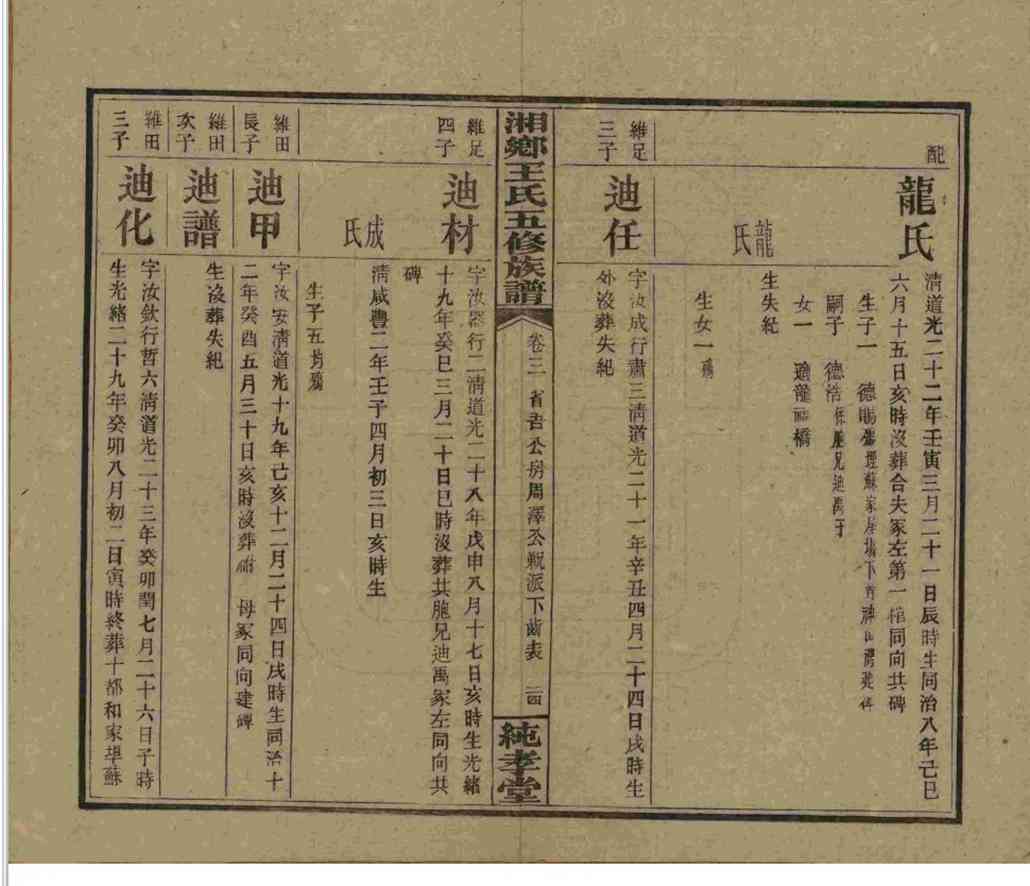 配
龍氏
清道光二十二年壬寅三月二十一日辰時生同治八年己巳
六月十五日亥時沒葬合夫冢左第一棺同向共碑
生子一 德賜殤埋蘇家屋場下首
嗣子 德浩係胞兄迪禹子
女一 適龍 橋
龍氏
生失紀
生女一殤
維足
三子
迪任
字汝成行肅三清道光二十一年辛丑四月二十四日戌時生
外沒葬失紀
湘鄉王氏五修族譜
卷三 省吾公房周澤公 派下齒表 二四
純孝堂
維足
四子
迪材
字汝器行二清道光二十八年戊申八月十七日亥時生光緒
十九年癸巳三月二十日巳時沒葬共胞兄迪禹冢左同向共
碑
成氏
清咸豐二年壬子四月初三日亥時生
生子五均殤
維田
長子
迪甲
字汝安清道光十九年己亥十二月二十四日戌時生同治十
二年癸酉五月三十日亥時沒葬祔 母冢同向建碑
維田
次子
迪譜
生沒葬失紀
維田
三子
迪化
字汝欽行哲六清道光二十三年癸卯閏七月二十六日子時
生光緒二十九年癸卯八月初二日寅時終葬十都和家埧蘇